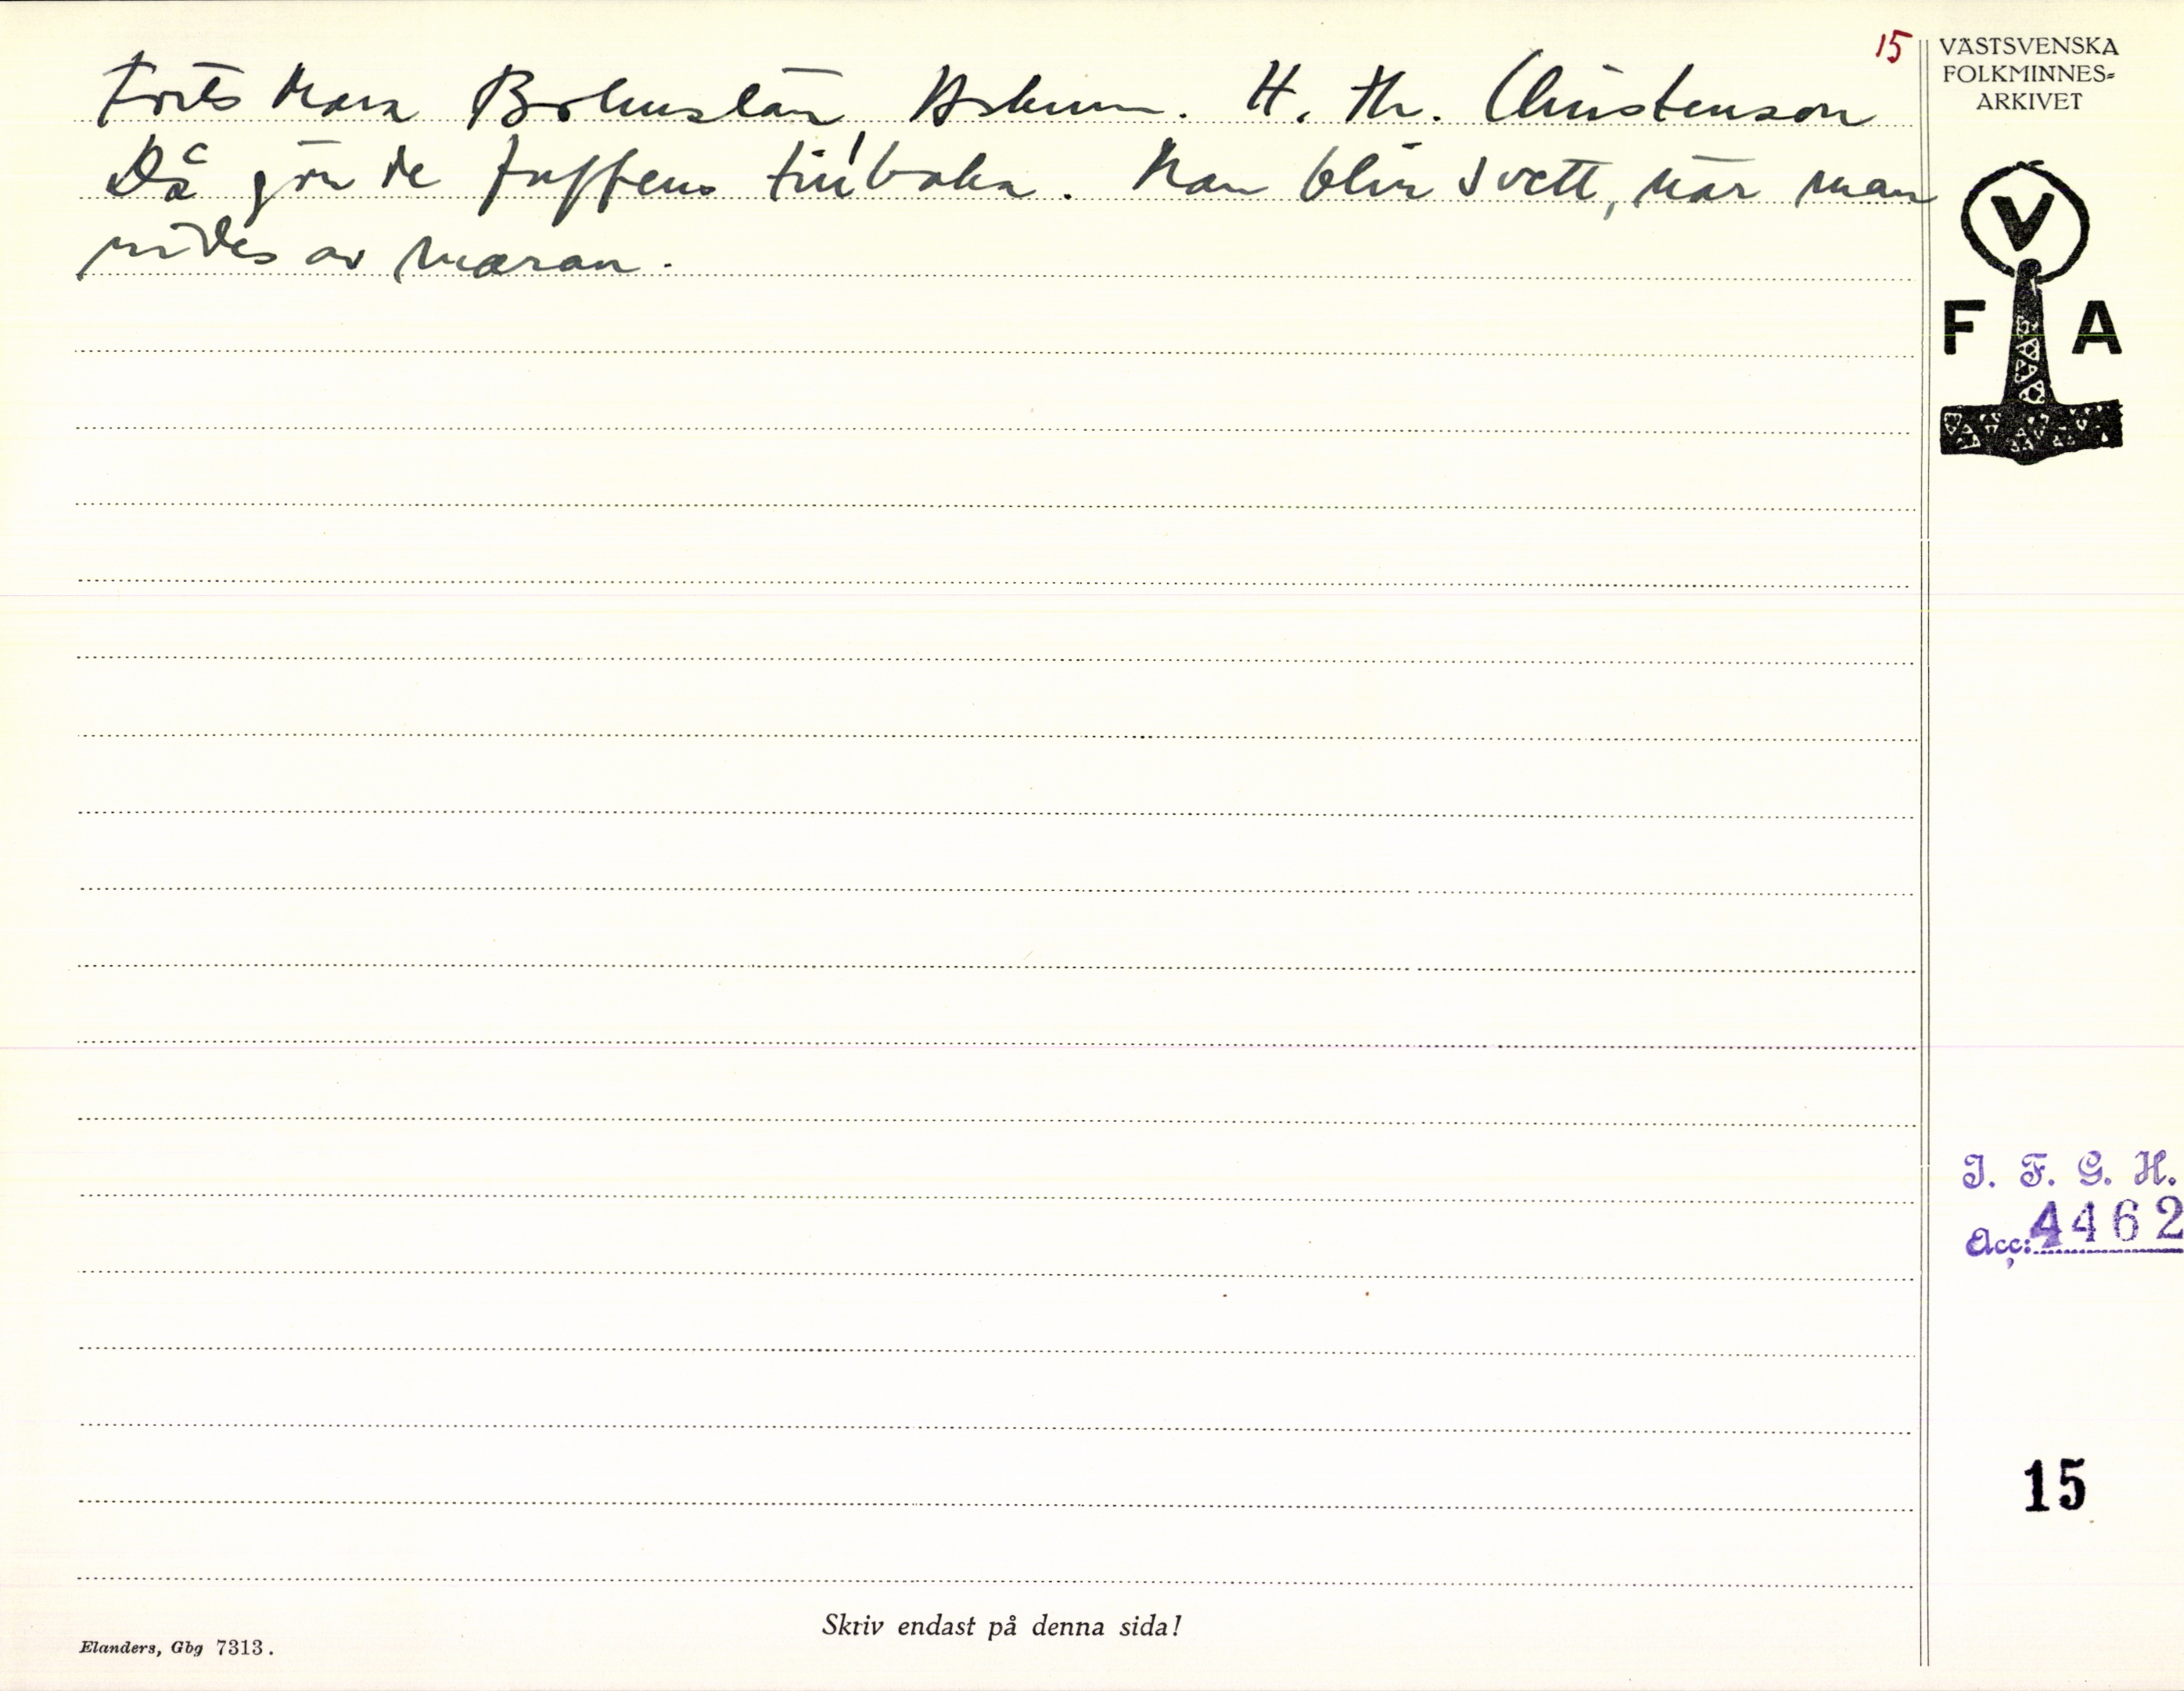 15
VÄSTSVENSKA
FOLKMINNES-
ARKIVET
Forts Mara Bohuslän, Askum. H. Th. Christenson
Då gör de tillbaka. Man blir svett, när man
rides av maran.
V
F A
I. F. G. H.
Acc: 4462
15
Skriv endast på denna sida!
Elanders, Gbg 7313.